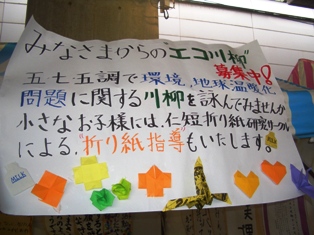 みなさまからの"エコ川柳"
募集中!
五七五調で環境、地球温暖化
問題に関する川柳を詠んでみませんか
小さなお子様には、仁短折り紙研究サークル
による、"折り紙指導"もいたします。
MILK